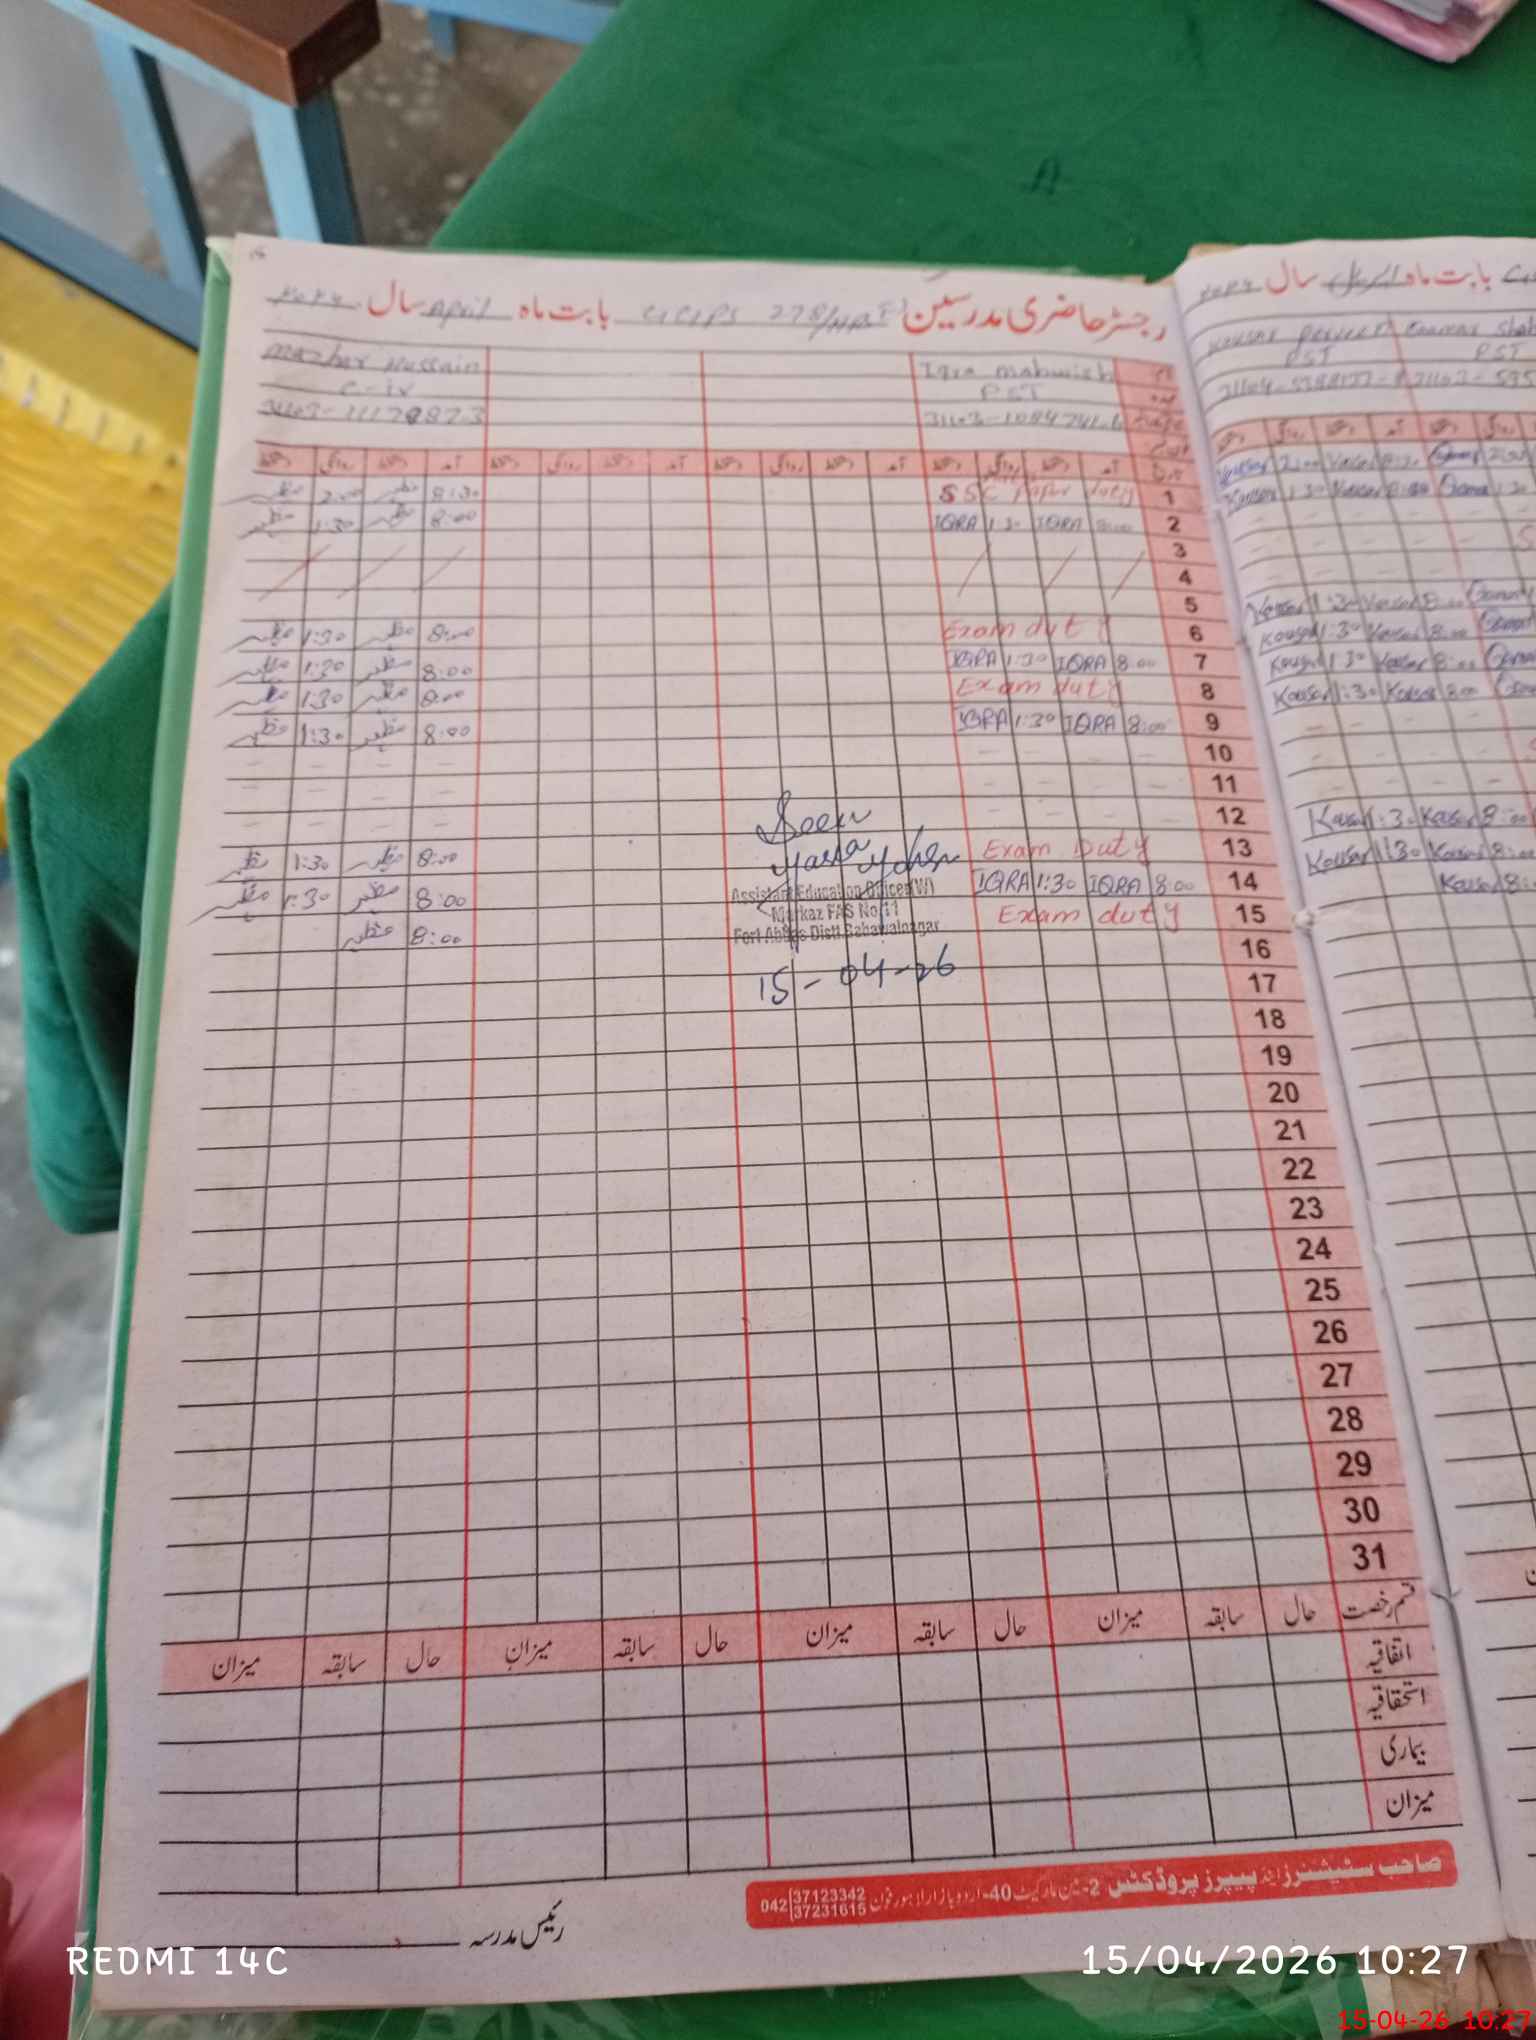 رجسٹر حاضری مدرسین GGPS 278/HR بابت ماہ April سال ۲۰۲۶
Iqra mahwish Mazhar Hussain
PST C-IV
آمد دستخط روانگی دستخط آمد دستخط روانگی دستخط آمد دستخط روانگی دستخط آمد دستخط روانگی دستخط
1 SSC Paper duty 8:30 مظہر 2:00 مظہر
2 8:00 IQRA 1:30 IQRA 8:00 مظہر 1:30 مظہر
3
4
5
6 Exam duty 8:00 مظہر 1:30 مظہر
7 8:00 IQRA 1:30 IQRA 8:00 مظہر 1:30 مظہر
8 Exam duty 8:00 مظہر 1:30 مظہر
9 8:00 IQRA 1:30 IQRA 8:00 مظہر 1:30 مظہر
10
11
12
13 Exam Duty 8:00 مظہر 1:30 مظہر
14 8:00 IQRA 1:30 IQRA 8:00 مظہر 1:30 مظہر
15 Exam duty 8:00 مظہر
Seen
Assistant Education Officer (W)
Markaz FAS No.11
Fort Abbas Distt. Bahawalnagar
15-04-26
16
17
18
19
20
21
22
23
24
25
26
27
28
29
30
31
قسم رخصت حال سابقہ میزان حال سابقہ میزان حال سابقہ میزان حال سابقہ میزان
اتفاقیہ
استحقاقیہ
بیماری
میزان
صاحب سٹیشنرز اینڈ پیپرز پروڈکٹس 2-مین مارکیٹ 40-اردو بازار لاہور فون 042 37123342 37231615
رئیس مدرسہ
بابت ماہ اپریل سال ۲۰۲۶
Kousar Perveen
PST PST
Kousar 2:00 Kousar
Kousar 1:30 Kousar 8:00
Kousar 1:30 Kousar 8:00
Kousar 1:30 Kousar 8:00
Kousar 1:30 Kousar 8:00
Kousar 1:30 Kousar 8:00
Kousar 1:30 Kousar 8:00
Kousar 1:30 Kousar 8:00
Kousar 8:
REDMI 14C
15/04/2026 10:27
15-04-26 10:27